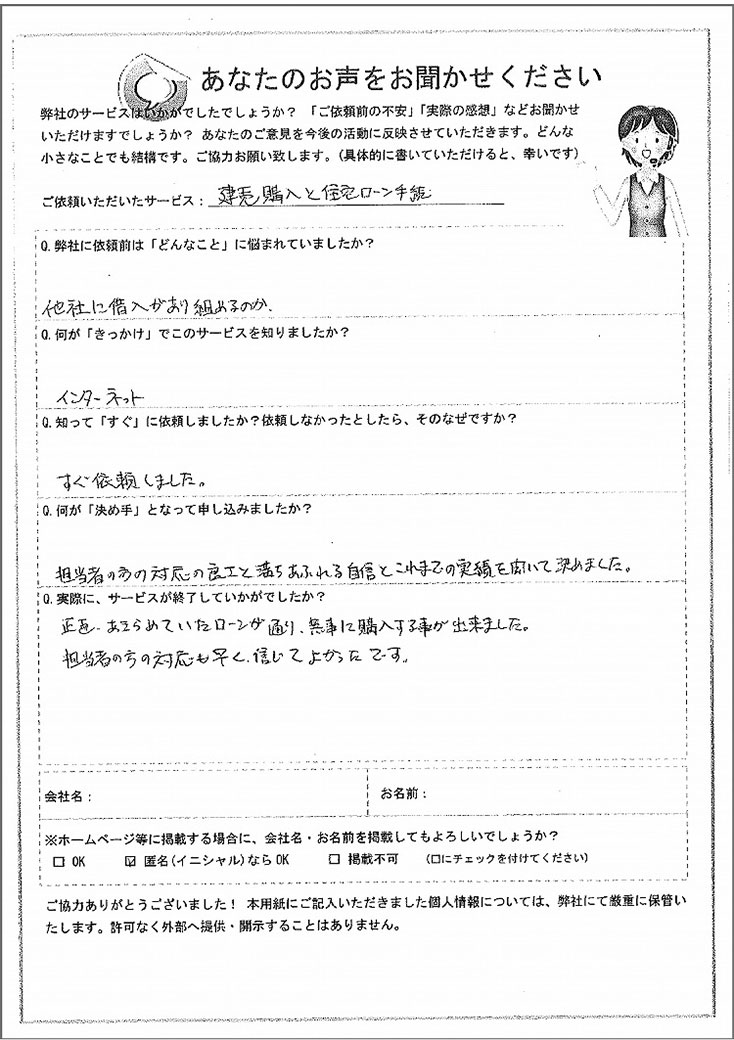 あなたのお声をお聞かせください
弊社のサービスはいかがでしたでしょうか？ 「ご依頼前の不安」「実際の感想」などお聞かせ
いただけますでしょうか？ あなたのご意見を今後の活動に反映させていただきます。どんな
小さなことでも結構です。ご協力お願い致します。（具体的に書いていただけると、幸いです）
ご依頼いただいたサービス： 建売購入と住宅ローン手続
Q.弊社に依頼前は「どんなこと」に悩まれていましたか？
他社に借入があり組めるのか、
Q.何が「きっかけ」でこのサービスを知りましたか？
インターネット
Q.知って「すぐ」に依頼しましたか？依頼しなかったとしたら、そのなぜですか？
すぐ依頼しました。
Q.何が「決め手」となって申し込みましたか？
担当者の方の対応の良さと満ちあふれる自信とこれまでの実績を聞いて決めました。
Q.実際に、サービスが終了していかがでしたか？
正直、あきらめていたローンが通り、無事に購入する事が出来ました。
担当者の方の対応も早く、信じてよかったです。
会社名： お名前：
※ホームページ等に掲載する場合に、会社名・お名前を掲載してもよろしいでしょうか？
□ OK ☑ 匿名（イニシャル）なら OK □ 掲載不可 （□にチェックを付けてください）
ご協力ありがとうございました！ 本用紙にご記入いただきました個人情報については、弊社にて厳重に保管い
たします。許可なく外部へ提供・開示することはありません。